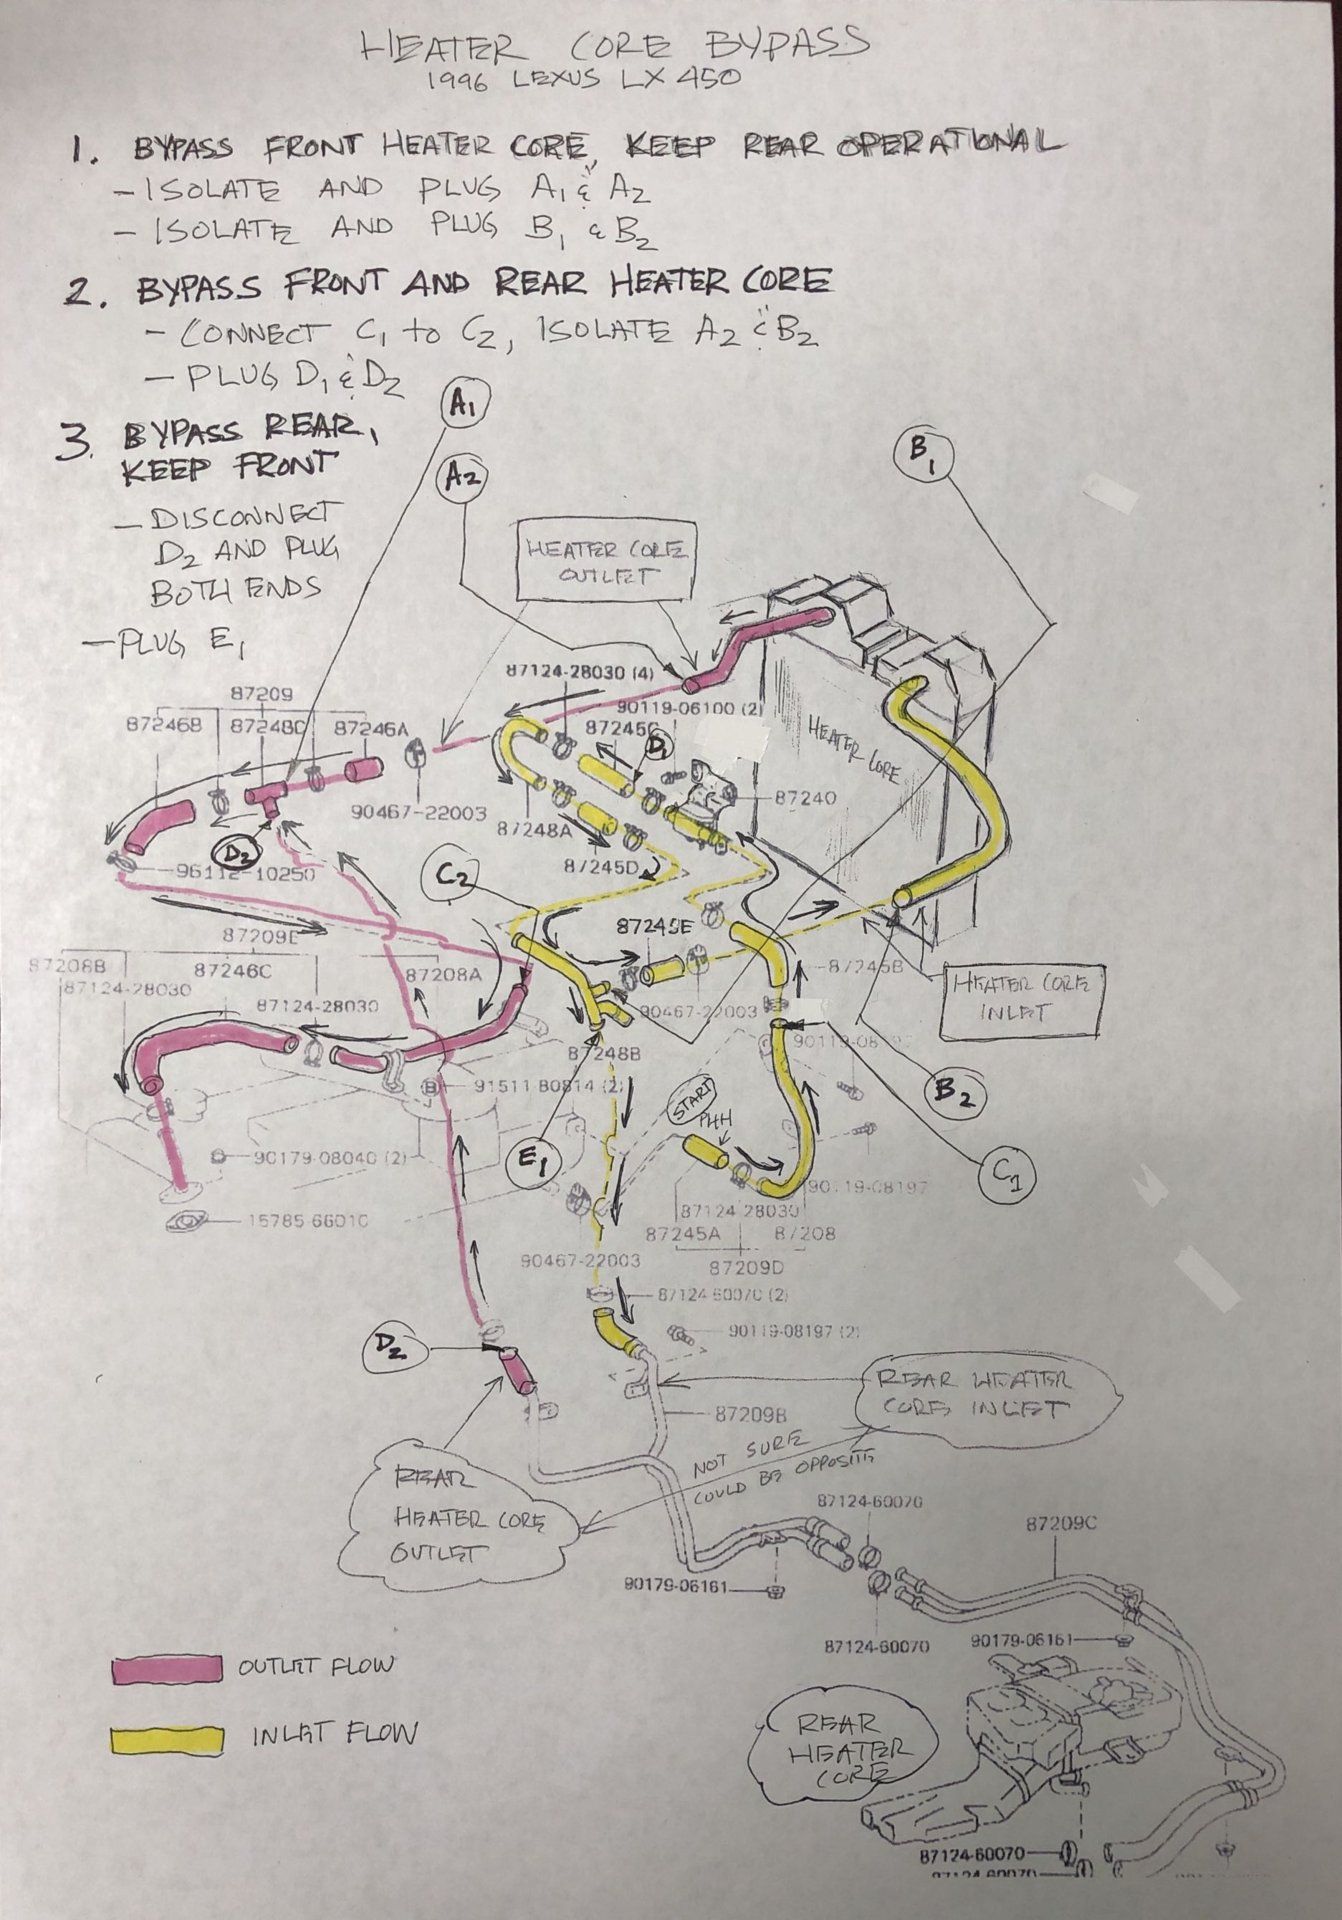 HEATER CORE BYPASS
1996 LEXUS LX 450
1. BYPASS FRONT HEATER CORE, KEEP REAR OPERATIONAL
- ISOLATE AND PLUG A1 & A2
- ISOLATE AND PLUG B1 & B2
2. BYPASS FRONT AND REAR HEATER CORE
- CONNECT C1 to C2, ISOLATE A2 & B2
- PLUG D1 & D2
3. BYPASS REAR,
KEEP FRONT
- DISCONNECT
D2 AND PLUG
BOTH ENDS
- PLUG E1
A1
A2
B1
HEATER CORE
OUTLET
87124-28030 (4)
90119-06100 (2)
87209
87246B
87248D
87246A
87245C
D1
HEATER CORE
87240
90467-22003
87248A
87245D
D2
96112-10250
C2
87209E
87245E
87208B
87246C
87208A
87245B
87124-28030
87124-28030
90467-22003
HEATER CORE
INLET
87248B
91511-80814 (2)
B
START
PHH
B2
E1
C1
90179-08040 (2)
90119-08197
15785-66010
87124-28030
87245A
87208
87209D
90467-22003
87124-60070 (2)
90119-08197 (2)
D2
REAR HEATER
CORE INLET
87209B
NOT SURE
COULD BE OPPOSITE
REAR
HEATER CORE
OUTLET
87124-60070
87209C
90179-06161
87124-60070
90179-06161
OUTLET FLOW
INLET FLOW
REAR
HEATER
CORE
87124-60070
87124-60070